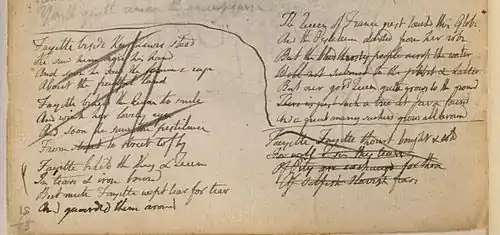 Fayette beside King Lewis stood
He saw him sign his hand
And soon he saw the famine rage
About the fruitful land
Fayette beheld the Queen to smile
And wink her lovely eye
And soon he saw the pestilence
From street to street to fly
Fayette beheld the King & Queen
In tears & iron bound
But mute Fayette wept tear for tear
And guarded them around
The Queen of France just touchd this Globe
And the Pestilence darted from her robe
But the people across the water
Will not submit to the gibbet & halter
But our good Queen quite grows to the ground
There is just such a tree at Java found
And a great many suckers grow all around
Fayette Fayette thourt bought & sold
For well I see thy tears
Of Pity are exchangd for those
Of Selfish Slavish fears